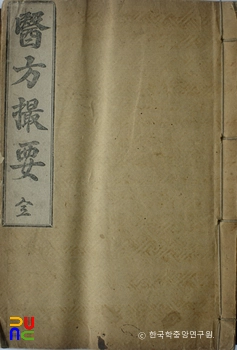 醫方撮要
全
© 한국학중앙연구원